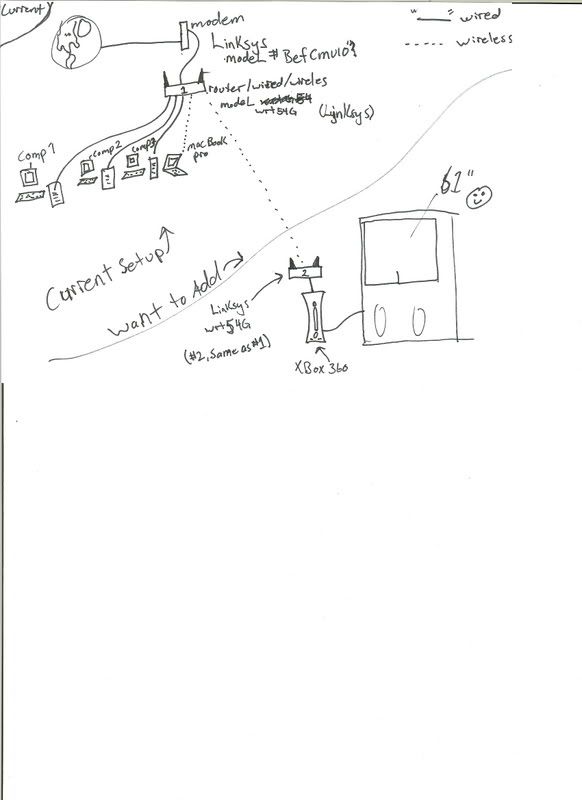 Current
modem
Linksys
model # Befcmu10
"—" wired
..... wireless
router/wired/wireles
model
wrt54G (Linksys)
1
Comp 1
comp 2
comp3
macBook
pro
61"
Current Setup
want to Add
2
Linksys
wrt54G
(#2, Same as #1)
XBox 360